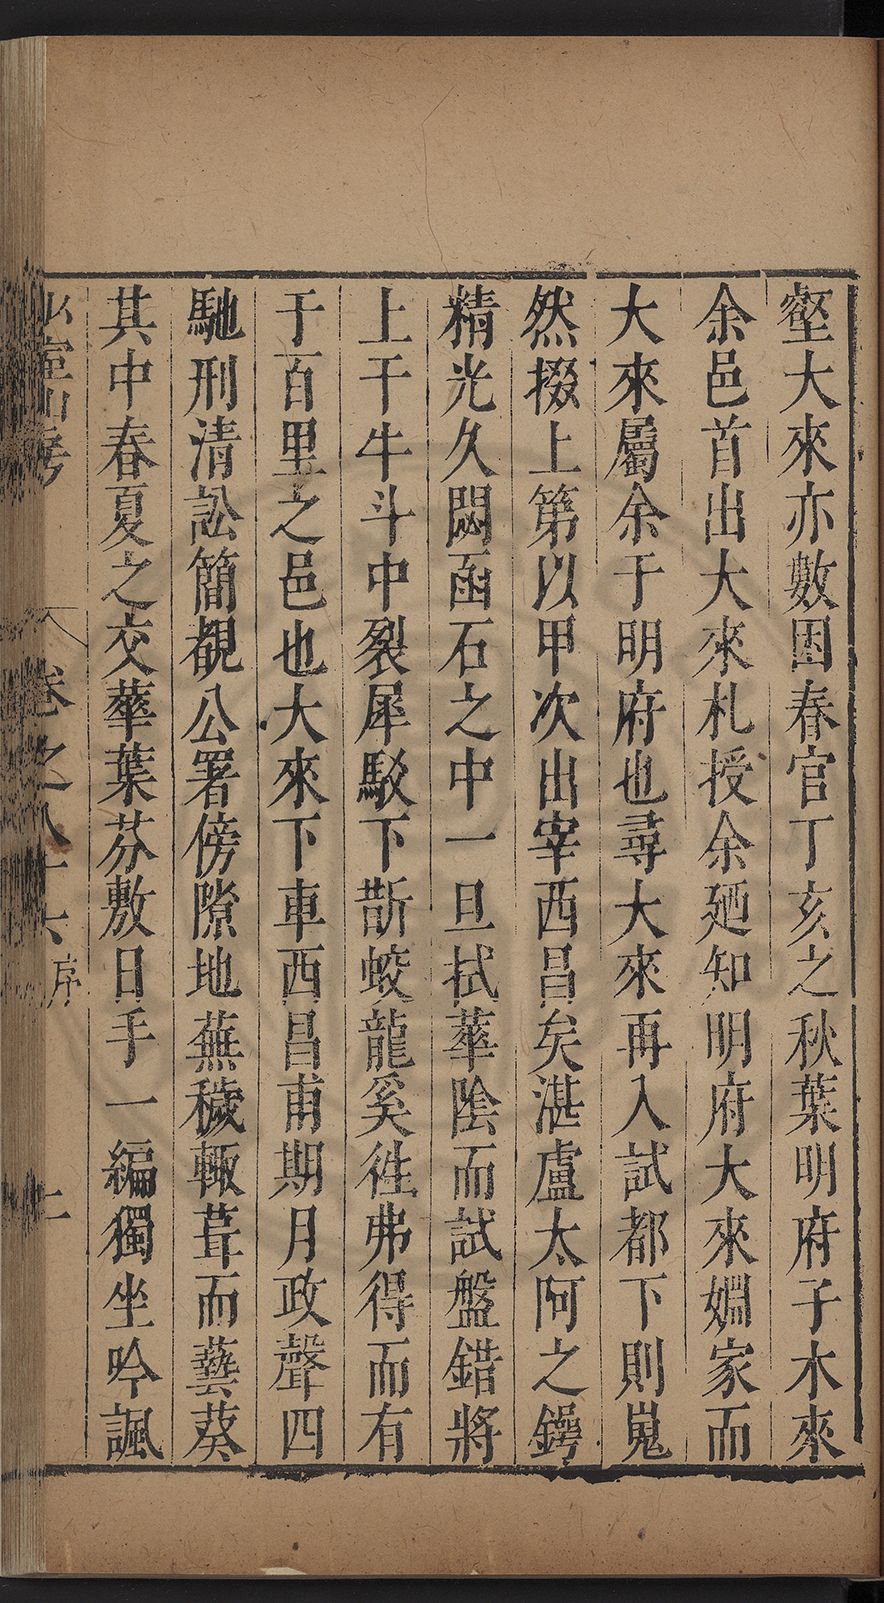 壑大來亦數困春官丁亥之秋葉明府子木來
余邑首出大來札授余廼知明府大來婣家而
大來屬余于明府也尋大來再入試都下則嵬
然掇上第以甲次出宰西昌矣湛盧太阿之鍔
精光久閟函石之中一旦拭華陰而試盤錯將
上干牛斗中裂犀駮下斮蛟龍奚徃弗得而有
于百里之邑也大來下車西昌甫期月政聲四
馳刑清訟簡覩公署傍隙地蕪穢輙葺而藝葵
其中春夏之交華葉芬敷日手一編獨坐吟諷
山房
卷之八十六 序
二